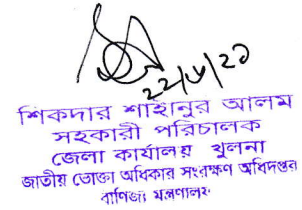 ২২/৮/২১
শিকদার শাহীনুর আলম
সহকারী পরিচালক
জেলা কার্যালয় খুলনা
জাতীয় ভোক্তা অধিকার সংরক্ষণ অধিদপ্তর
বাণিজ্য মন্ত্রণালয়